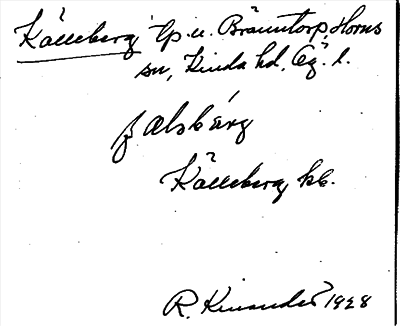 Källeberg tp. u. Bränntorp, Horns
sn, Kinda hd, Ög. l.
Källeberg, kb.
R. Kinander 1928